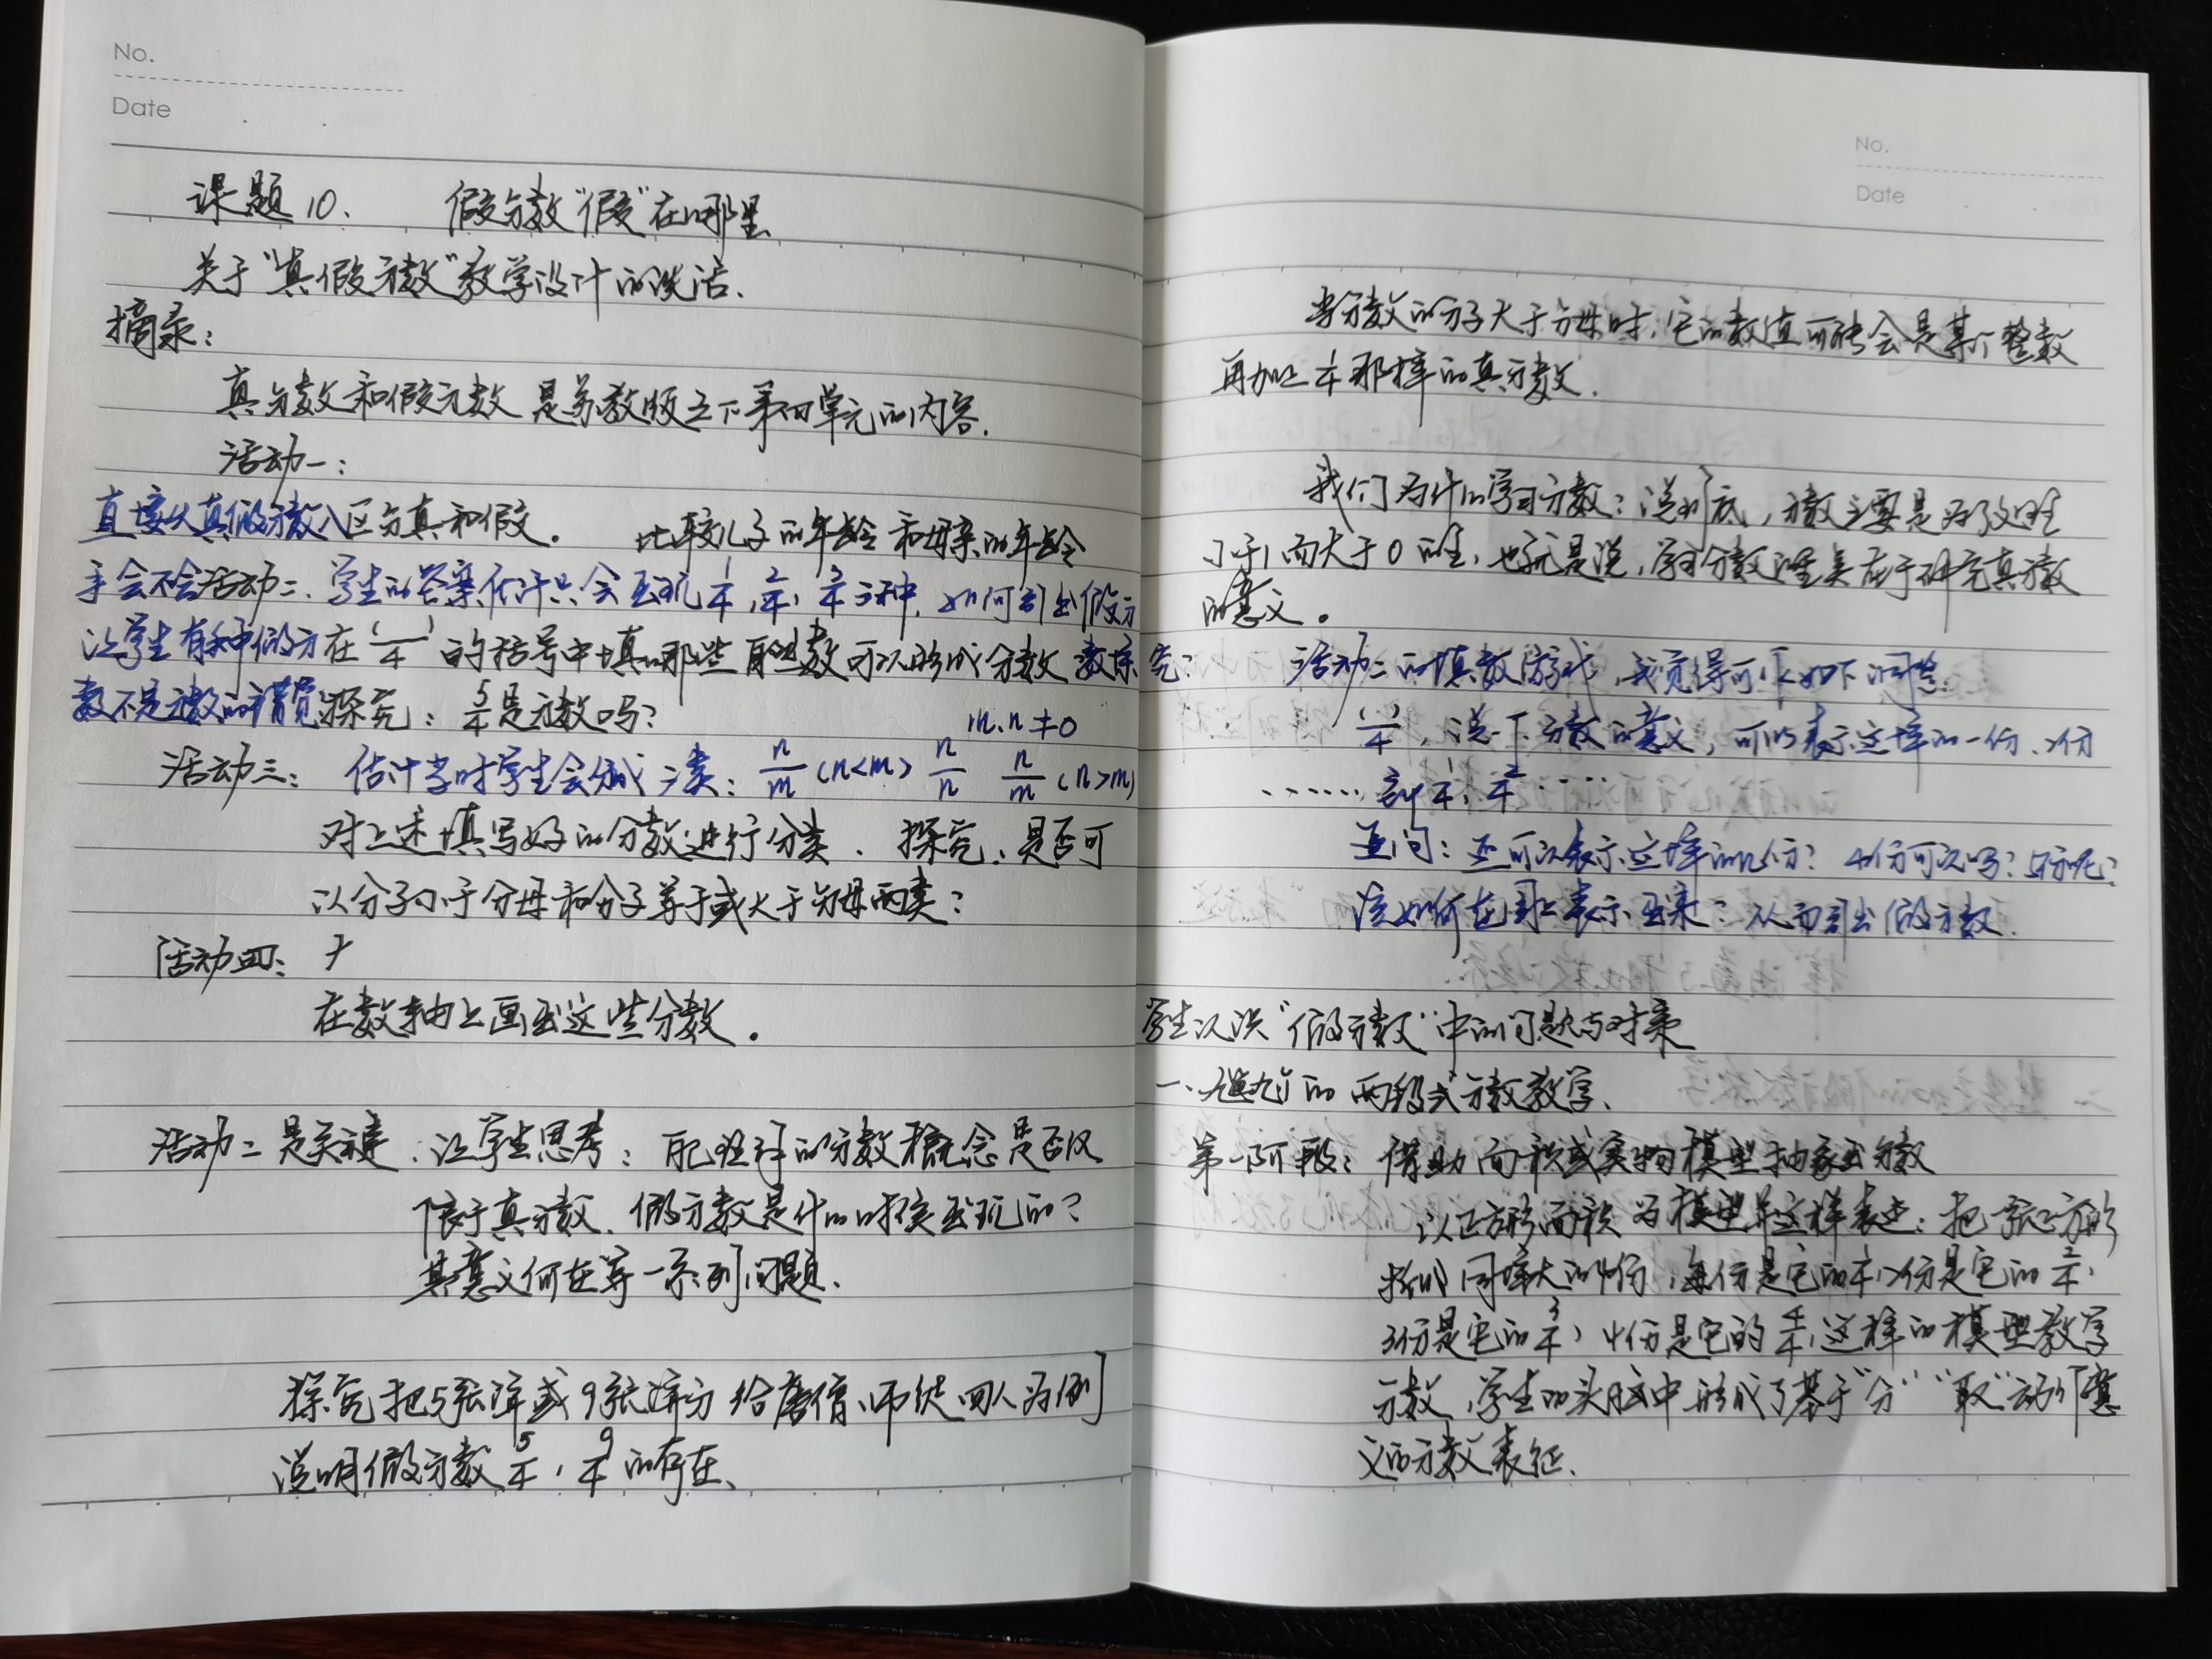 No.
Date
课题10. 假分数“假”在哪里
关于“真假分数”教学设计的谈话.
摘录:
真分数和假分数是苏教版五下第四单元的内容.
活动一:
直接从真假分数入 区分真和假. 比较儿子的年龄和母亲的年龄
手会不会 活动二. 学生的答案估计只会出现1/4,2/4,3/4三种. 如何引出假分
让学生有种假分 在( )/4的括号中填哪些自然数可以形成分数 数探究?
数不是分数的错觉 探究: 5/4是分数吗?
m.n≠0
活动三: 估计当时学生会分成三类: n/m (n<m) n/n n/m (n>m)
对上述填写好的分数进行分类. 探究: 是否可
以分子小于分母和分子等于或大于分母两类?
活动四:
在数轴上画出这些分数.
活动二是关键. 让学生思考: 的分数概念是否仅
限于真分数. 假分数是什么时候出现的?
其意义何在等一系列问题.
探究把5张饼或9张饼分给唐僧师徒四人为例
说明假分数5/4, 9/4的存在.
No.
Date
当分数的分子大于分母时, 它的数值可能会是某个整数
再加上1/4那样的真分数.
我们为什么学习分数: 说到底, 分数主要是为了处理
小于1而大于0的量, 也就是说, 学习分数 在于研究真分数
的意义.
活动二的填数游戏, 我觉得可以 如下调整.
( )/4, 说一下分数的意义, 可以表示这样的一份、2份
...... 到1/4, 2/4 ....
追问: 还可以表示这样的几份? 4份可以吗? 5份呢?
该如何在图上表示出来? 从而引出假分数.
学生认识“假分数”中的问题与对策
一. 的两段式分数教学.
第一阶段: 借助面积或实物模型抽象出分数
以正方形面积为模型 这样表述: 把一张正方形
折成同样大的4份, 每份是它的1/4, 2份是它的2/4,
3份是它的3/4, 4份是它的4/4, 这样的模型教学
分数, 学生的头脑中形成了基于“分”“取”动作意
义的分数表征.